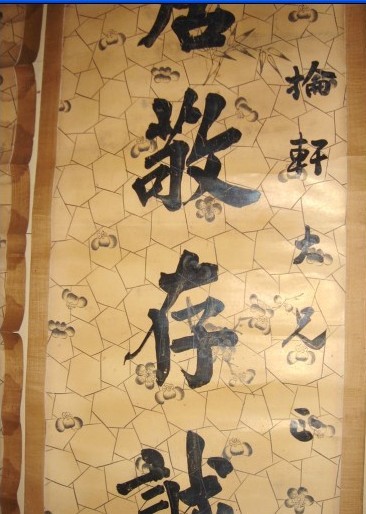 掄軒大兄正
居敬存誠